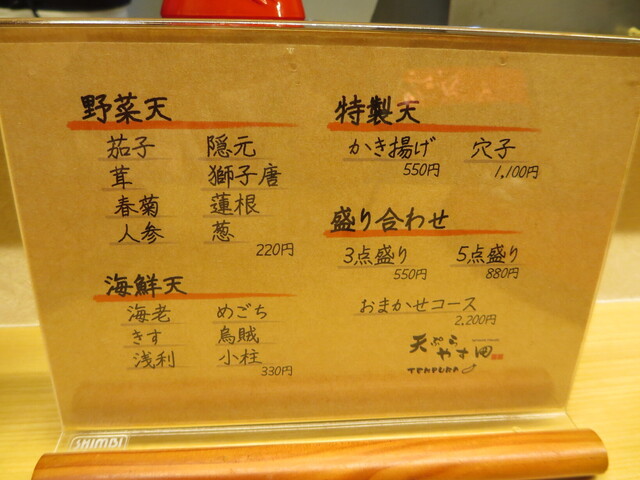 野菜天
茄子 隠元
茸 獅子唐
春菊 蓮根
人参 葱
220円
海鮮天
海老 めごち
きす 烏賊
浅利 小柱
330円
特製天
かき揚げ 穴子
550円 1,100円
盛り合わせ
3点盛り 5点盛り
550円 880円
おまかせコース
2,200円
天ぷら
やす田
TEMPURA
SHIMBI